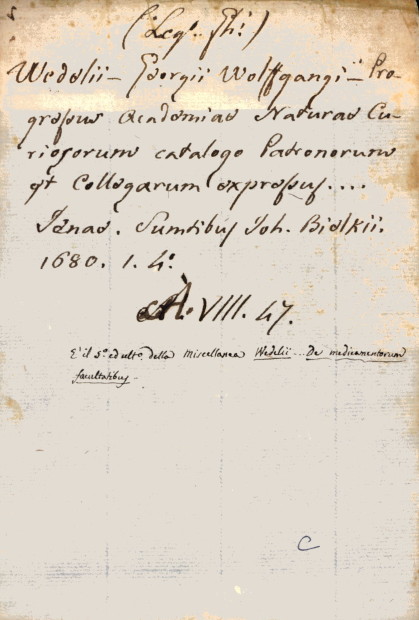 (Legt. Eh:)
Wedelii – Georgii Wolffgangi – Pro-
gressus Academiae Naturae Cu-
riosorum catalogo Patronorum
et Collegarum expressus....
Ienae. Sumtibus Joh. Bielkii.
1680. 1. 4°.
A. VIII. 47.
E' il 5° ed ulto. della Miscellanea Wedelii... De medicamentorum
facultatibus
C